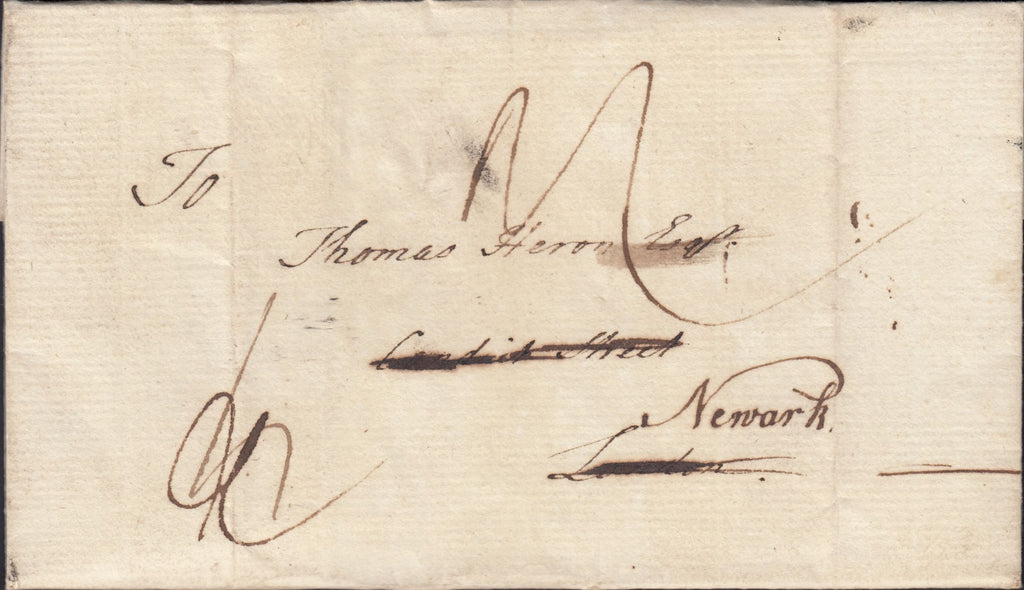 To
Thomas Heron Esqr.
Conduit Street
Newark.
London.